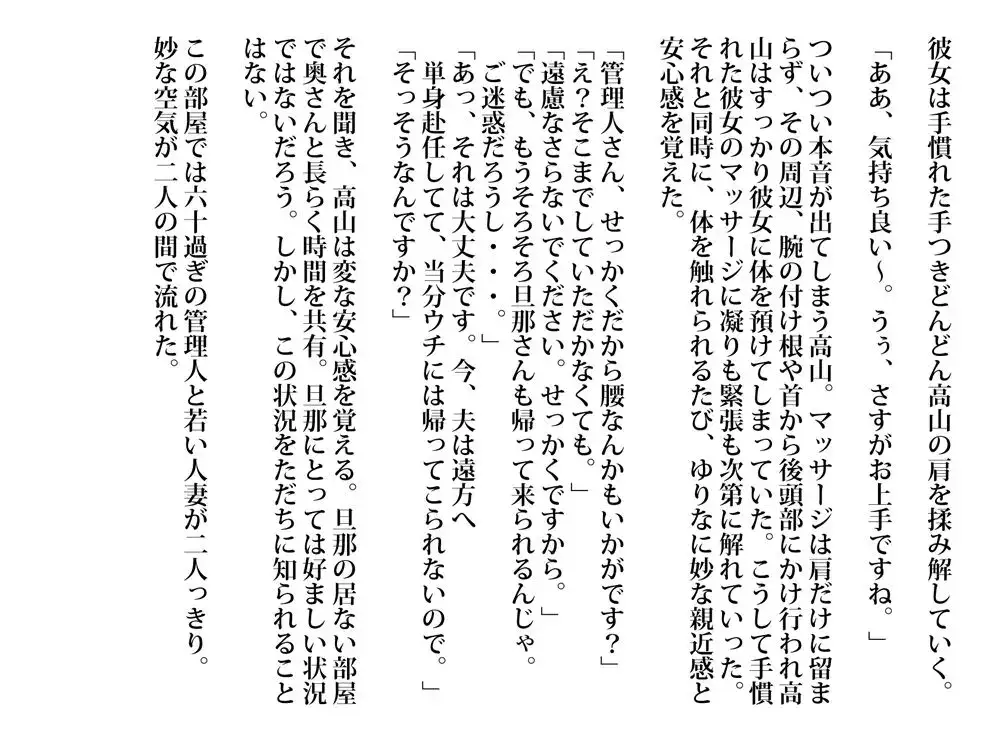 彼女は手慣れた手つきどんどん高山の肩を揉み解していく。
「ああ、気持ち良い～。うぅ、さすがお上手ですね。」
ついつい本音が出てしまう高山。マッサージは肩だけに留ま
らず、その周辺、腕の付け根や首から後頭部にかけ行われ高
山はすっかり彼女に体を預けてしまっていた。こうして手慣
れた彼女のマッサージに凝りも緊張も次第に解れていった。
それと同時に、体を触れられるたび、ゆりなに妙な親近感と
安心感を覚えた。
「管理人さん、せっかくだから腰なんかもいかがです？」
「え？そこまでしていただかなくても。」
「遠慮なさらないでください。せっかくですから。」
「でも、もうそろそろ旦那さんも帰って来られるんじゃ。
ご迷惑だろうし・・・。」
「あっ、それは大丈夫です。今、夫は遠方へ
単身赴任してて、当分ウチには帰ってこられないので。」
「そっそうなんですか？」
それを聞き、高山は変な安心感を覚える。旦那の居ない部屋
で奥さんと長らく時間を共有。旦那にとっては好ましい状況
ではないだろう。しかし、この状況をただちに知られること
はない。
この部屋では六十過ぎの管理人と若い人妻が二人っきり。
妙な空気が二人の間で流れた。